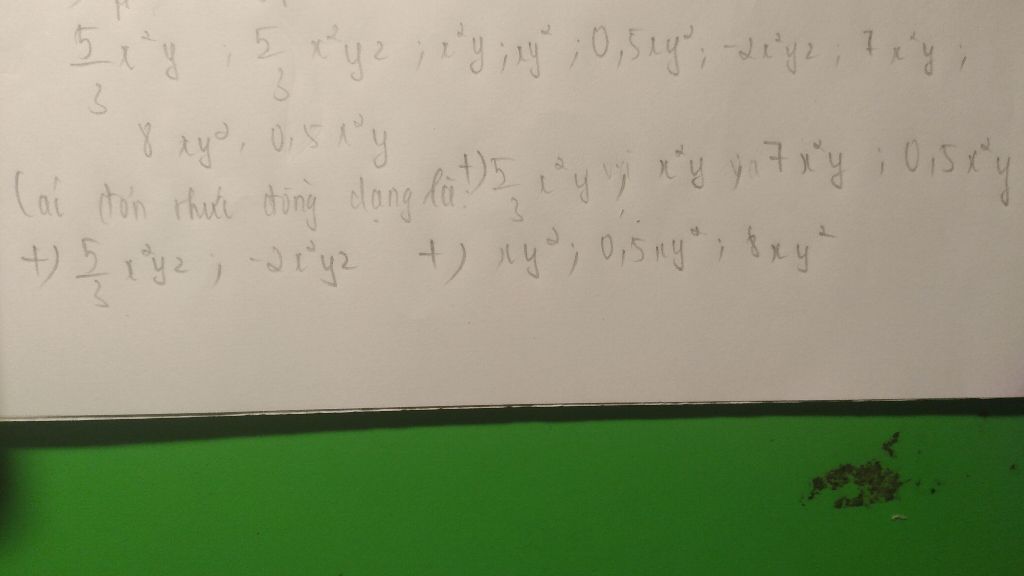 5/3 x²y ; 5/3 x²yz ; x²y ; xy² ; 0,5xy² ; -2x²yz ; 7x²y ;
8xy² . 0,5x²y
Các đơn thức đồng dạng là: +) 5/3 x²y với x²y và 7x²y ; 0,5x²y
+) 5/3 x²yz ; -2x²yz +) xy² ; 0,5xy² ; 8xy²